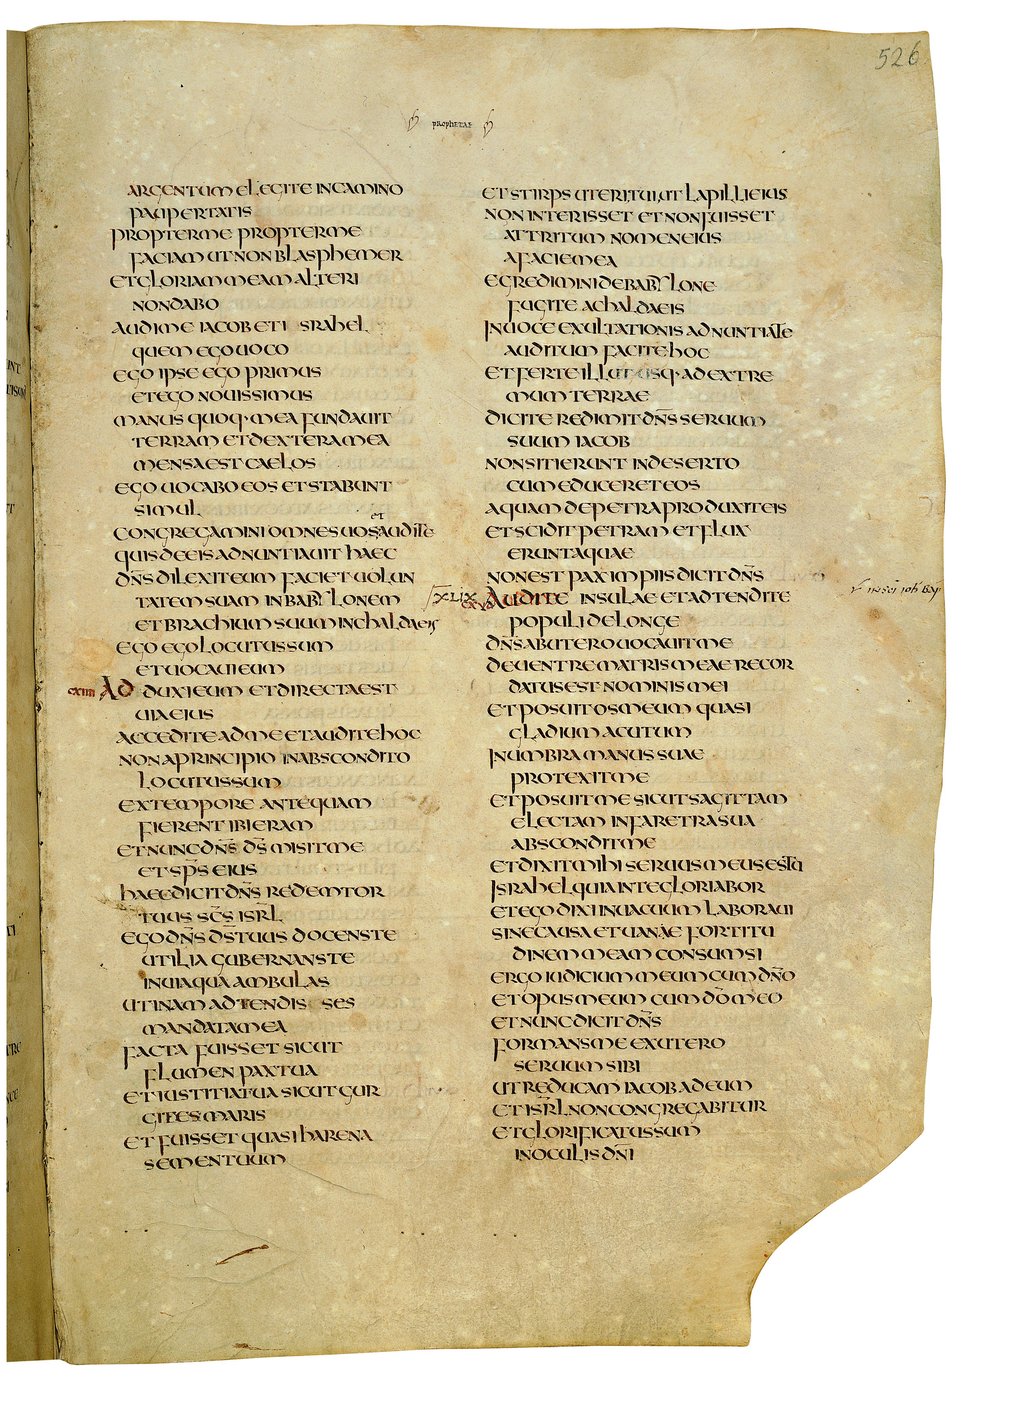 526
PROPHETAE
ARGENTUM ELEGITE INCAMINO
PAUPERTATIS
PROPTERME PROPTERME
FACIAM UT NON BLASPHEMER
ET GLORIAM MEAM ALTERI
NON DABO
AUDI ME IACOB ET ISRAHEL
QUEM EGO UOCO
EGO IPSE EGO PRIMUS
ET EGO NOUISSIMUS
MANUS QUOQ· MEA FUNDAUIT
TERRAM ET DEXTERA MEA
MENSA EST CAELOS
EGO UOCABO EOS ET STABUNT
SIMUL
et
CONGREGAMINI OMNES UOS AUDITE
QUIS DE EIS ADNUNTIAUIT HAEC
DN̄S DILEXIT EUM FACIET UOLUN
TATEM SUAM IN BABYLONEM
ET BRACHIUM SUUM IN CHALDAEIS
EGO EGO LOCUTUS SUM
ET UOCAUI EUM
CXIIII AD DUXI EUM ET DIRECTA EST
UIA EIUS
ACCEDITE AD ME ET AUDITE HOC
NON A PRINCIPIO IN ABSCONDITO
LOCUTUS SUM
EX TEMPORE ANTEQUAM
FIERENT IBI ERAM
ET NUNC DN̄S D̄S MISIT ME
ET SP̄S EIUS
HAEC DICIT DN̄S REDEMTOR
TUUS SC̄S ISRL̄
EGO DN̄S D̄S TUUS DOCENS TE
UTILIA GUBERNANS TE
IN UIA QUA AMBULAS
UTINAM ADTENDISSES
MANDATA MEA
FACTA FUISSET SICUT
FLUMEN PAX TUA
ET IUSTITIA TUA SICUT GUR
GITES MARIS
ET FUISSET QUASI HARENA
SEMEN TUUM
ET STIRPS UTERI TUI UT LAPILLI EIUS
NON INTERISSET ET NON FUISSET
ATTRITUM NOMEN EIUS
A FACIE MEA
EGREDIMINI DE BABYLONE
FUGITE A CHALDAEIS
IN UOCE EXULTATIONIS ADNUNTIATE
AUDITUM FACITE HOC
ET FERTE ILLUT USQ· AD EXTRE
MUM TERRAE
DICITE REDIMIT DN̄S SERUUM
SUUM IACOB
NON SITIERUNT IN DESERTO
CUM EDUCERET EOS
AQUAM DE PETRA PRODUXIT EIS
ET SCIDIT PETRAM ET FLUX
ERUNT AQUAE
NON EST PAX IMPIIS DICIT DN̄S
XLIX AUDITE INSULAE ET ADTENDITE
POPULI DE LONGE
DN̄S AB UTERO UOCAUIT ME
DE UENTRE MATRIS MEAE RECOR
DATUS EST NOMINIS MEI
ET POSUIT OS MEUM QUASI
GLADIUM ACUTUM
IN UMBRA MANUS SUAE
PROTEXIT ME
ET POSUIT ME SICUT SAGITTAM
ELECTAM IN FARETRA SUA
ABSCONDIT ME
ET DIXIT MIHI SERUUS MEUS ES TU
ISRAHEL QUIA IN TE GLORIABOR
ET EGO DIXI IN UACUUM LABORAUI
SINE CAUSA ET UANAE FORTITU
DINEM MEAM CONSUMSI
ERGO IUDICIUM MEUM CUM DN̄O
ET OPUS MEUM CUM D̄O MEO
ET NUNC DICIT DN̄S
FORMANS ME EX UTERO
SERUUM SIBI
UT REDUCAM IACOB AD EUM
ET ISRL̄ NON CONGREGABITUR
ET GLORIFICATUS SUM
IN OCULIS DN̄I